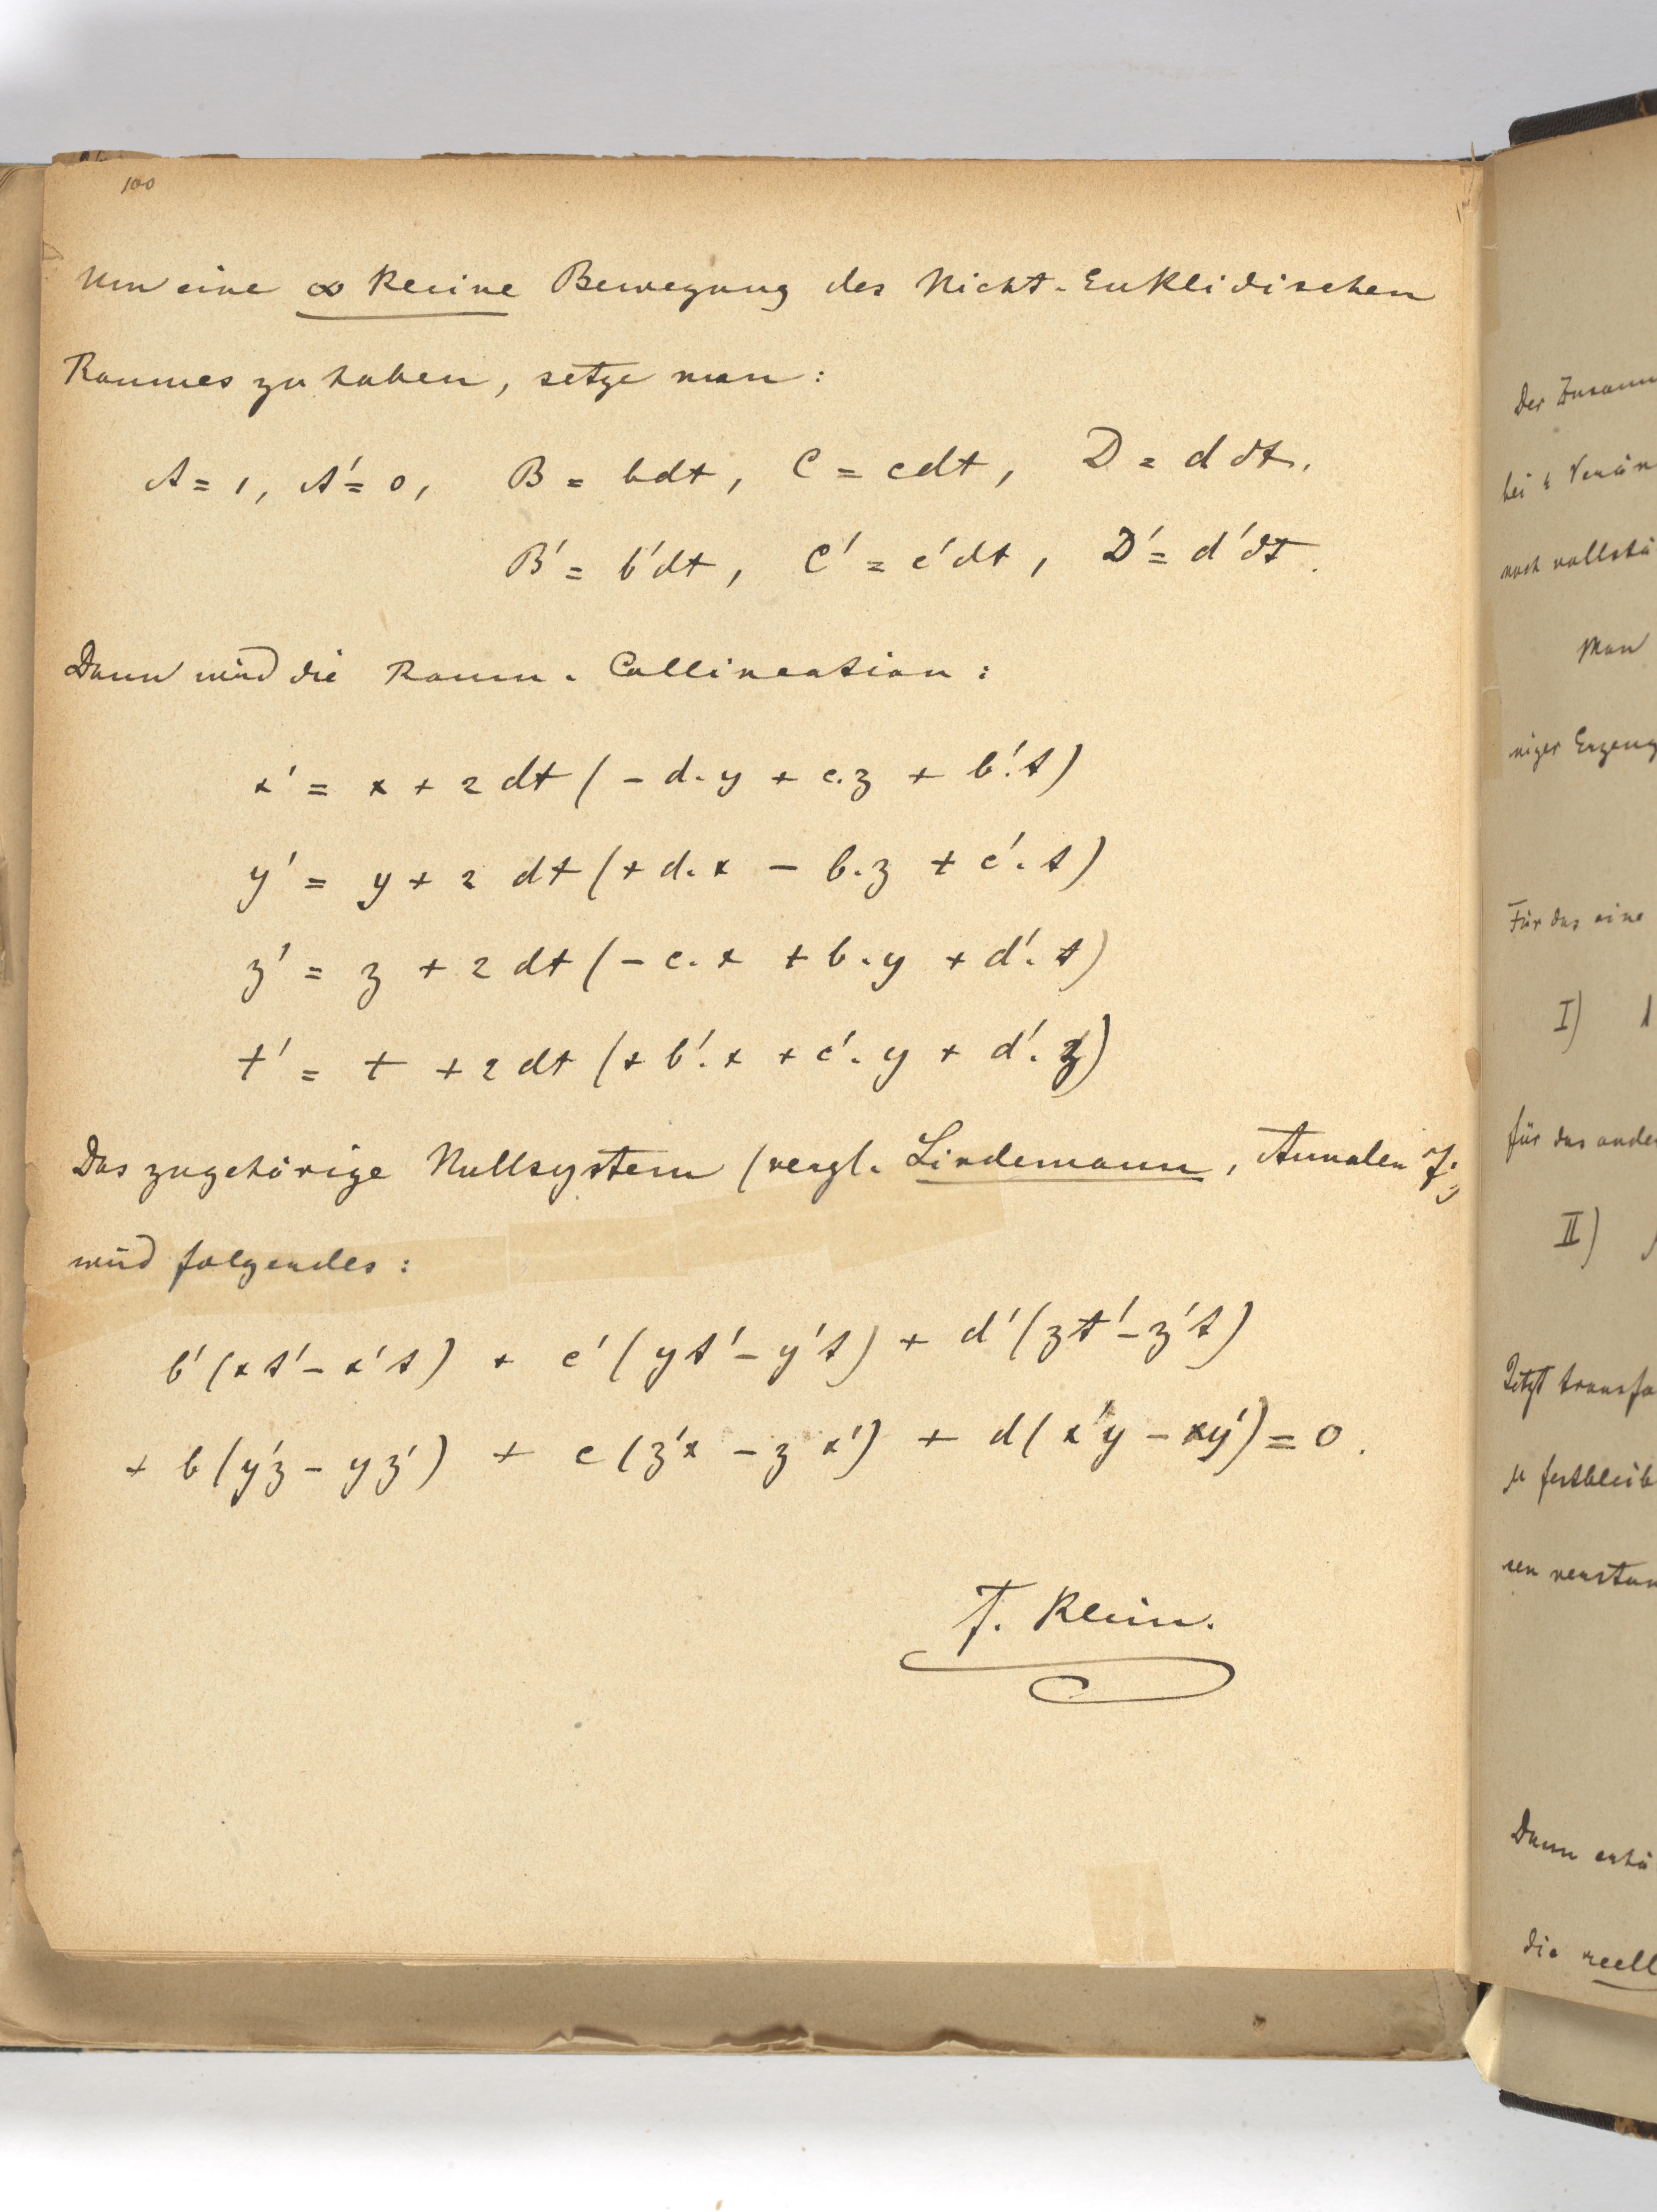 100
Um eine ∞ kleine Bewegung des Nicht-Euklidischen
Raumes zu haben, setze man:
A = 1, A' = 0, B = bdt, C = cdt, D = d dt.
B' = b'dt, C' = c'dt, D' = d'dt.
Dann wird die Raum-Collineation:
x' = x + 2 dt (- d.y + c.z + b'.t)
y' = y + 2 dt (+ d.x - b.z + c'.t)
z' = z + 2 dt (- c.x + b.y + d'.t)
t' = t + 2 dt (+ b'.x + c'.y + d'.z)
Das zugehörige Nullsystem (vergl. Lindemann, Annalen 7)
wird folgendes:
b'(xt' - x't) + c'(yt' - y't) + d'(zt' - z't)
+ b(y'z - yz') + c(z'x - zx') + d(x'y - xy') = 0.
F. Klein.
Der
bei
noch
Man
niger
Für das eine
I)
für das ande
II)
Jetzt transfo
Dann
die reell